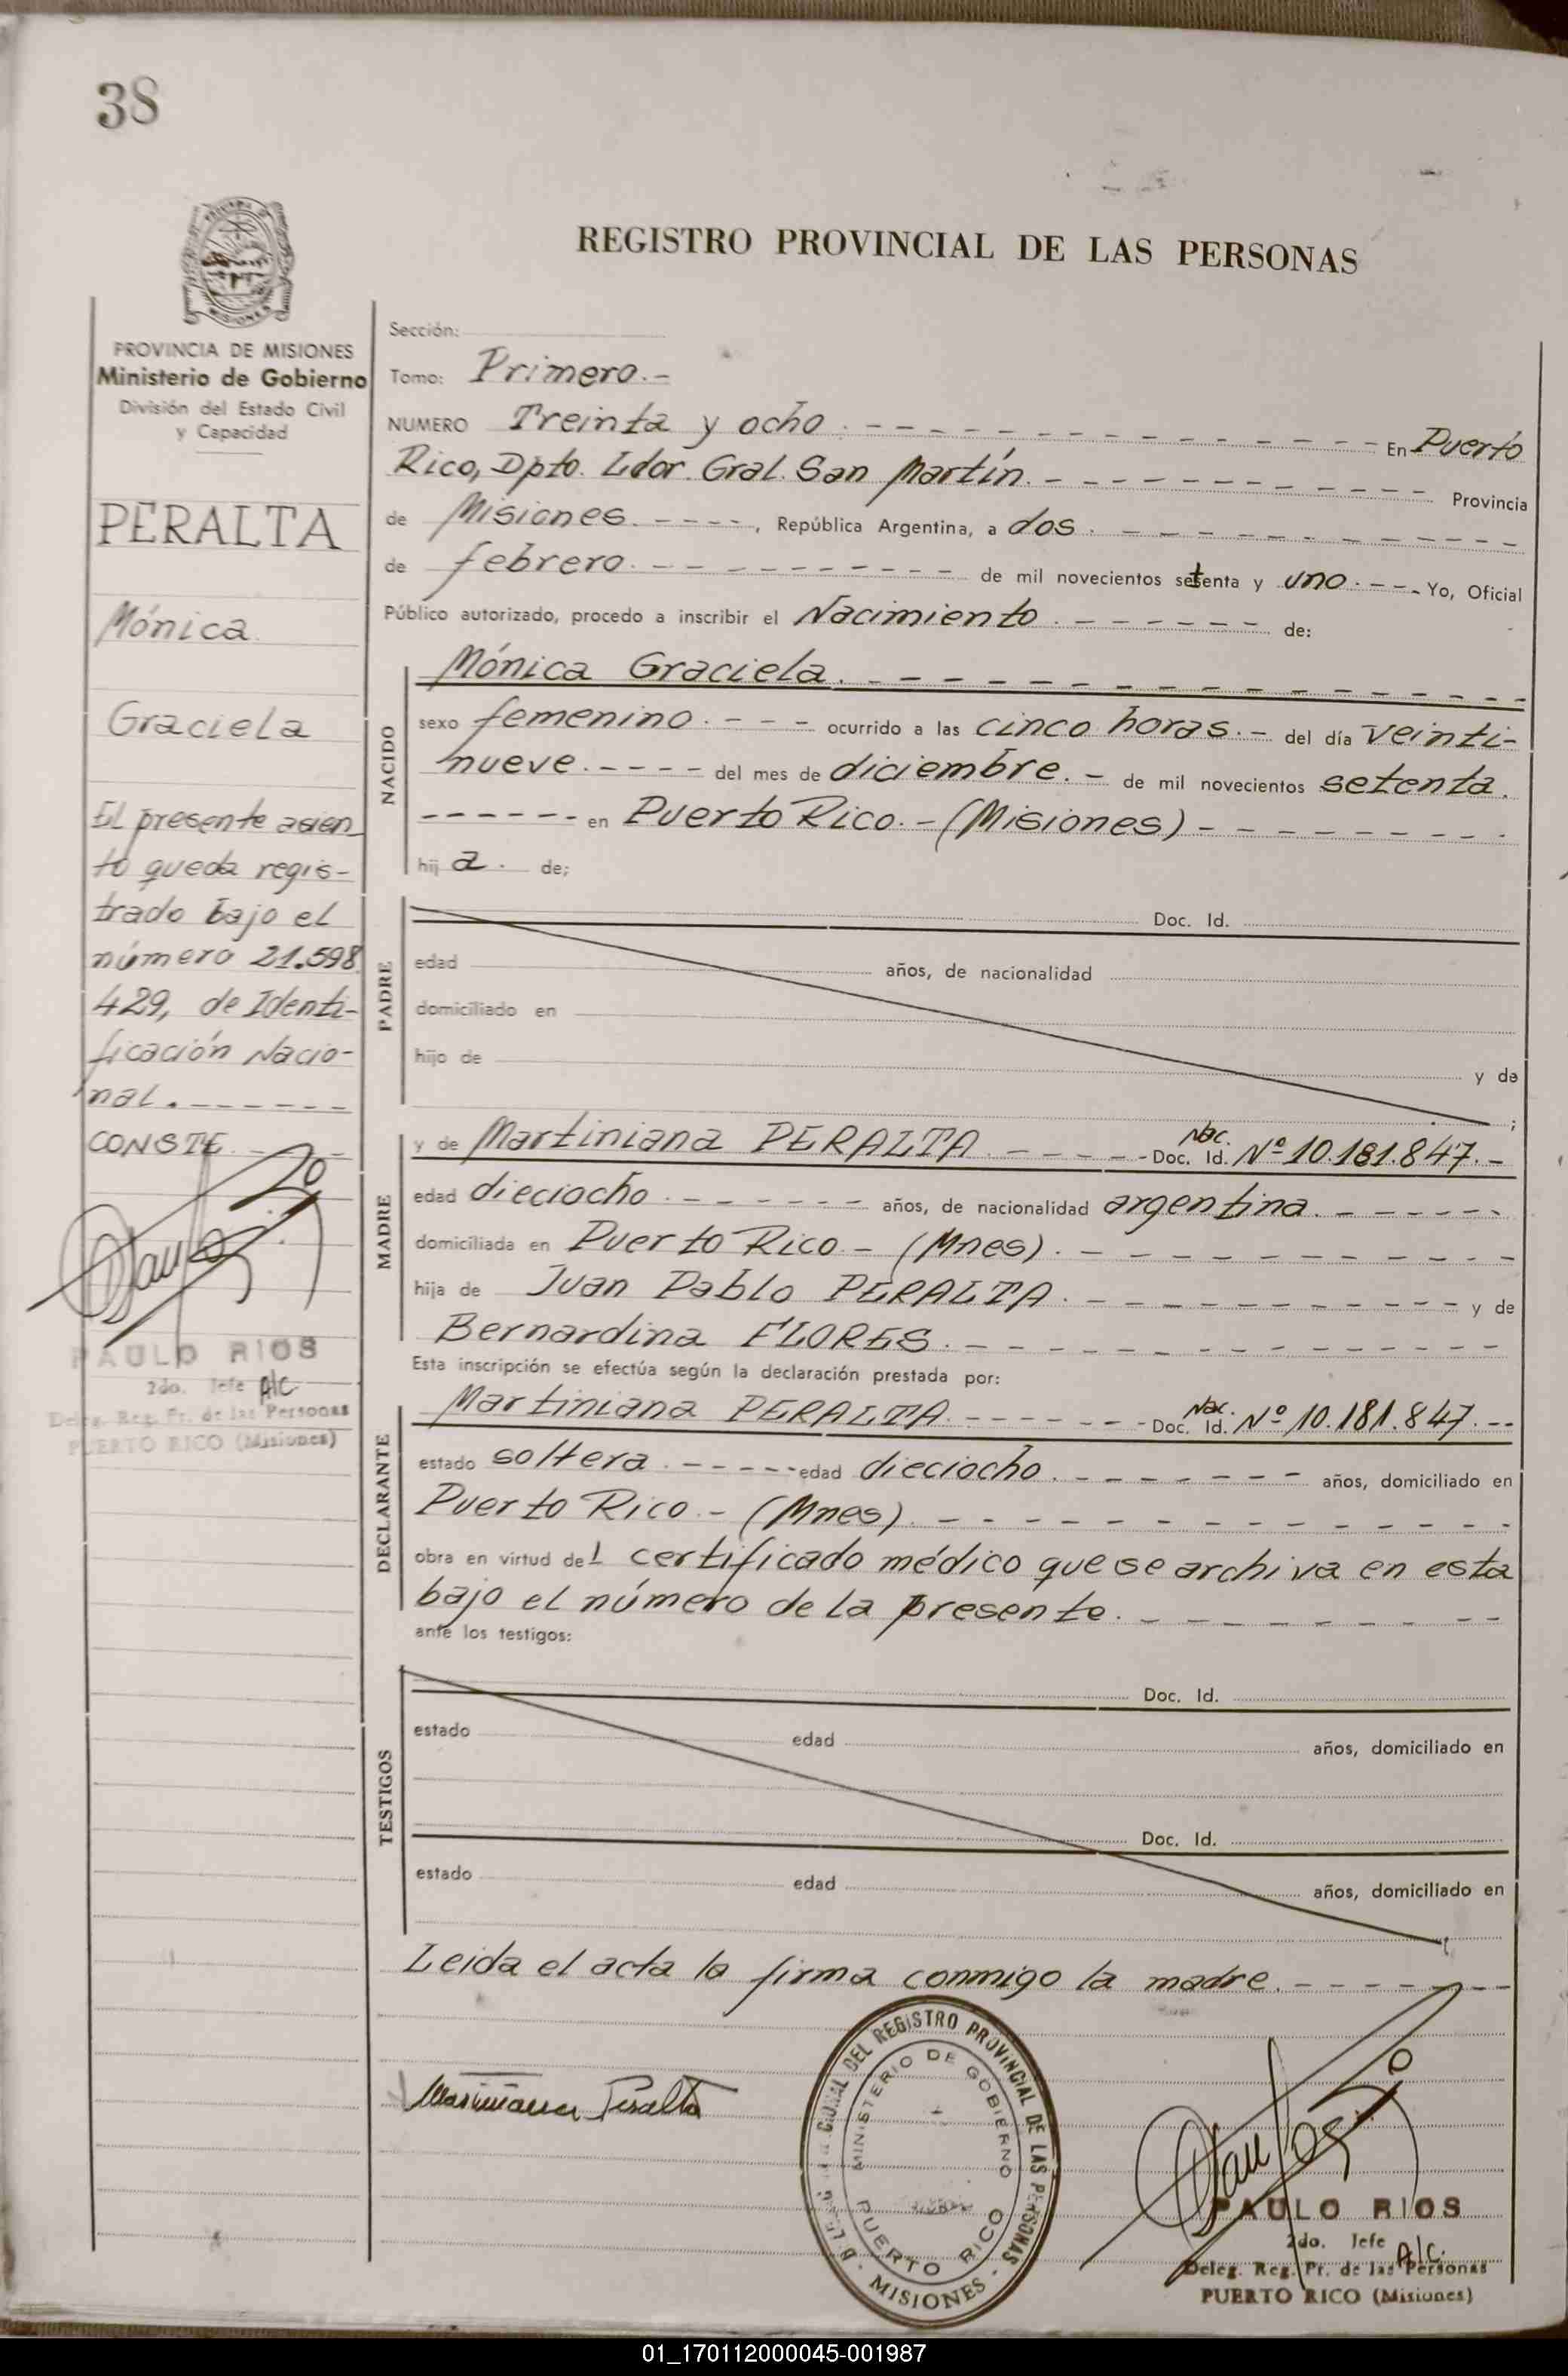 38
REGISTRO PROVINCIAL DE LAS PERSONAS
MISIONES
PROVINCIA DE MISIONES
Ministerio de Gobierno
División del Estado Civil
y Capacidad
PERALTA
Mónica
Graciela
El presente asien
to queda regis-
trado bajo el
número 21.598
429, de Identi-
ficación Nacio-
nal. - - - - - -
CONSTE. - - -
PAULO RIOS
2do. Jefe A/C.
Deleg. Reg. Pr. de las Personas
PUERTO RICO (Misiones)
Sección:
Tomo: Primero.-
NUMERO Treinta y ocho. - - - - - - - - - - - - - En Puerto
Rico, Dpto. Ldor. Gral. San Martín. - - - - - - - - - - Provincia
de Misiones. - - - -, República Argentina, a dos. - - - - - - - - - -
de febrero. - - - - - - - - - de mil novecientos setenta y uno. - - - Yo, Oficial
Público autorizado, procedo a inscribir el Nacimiento. - - - - - - - de:
NACIDO
Mónica Graciela. - - - - - - - - - - - - - - - -
sexo femenino. - - - ocurrido a las cinco horas. - del día veinti-
nueve. - - - - del mes de diciembre. - de mil novecientos setenta.
- - - - - - en Puerto Rico. - (Misiones) - - - - - - - -
hij a. de;
PADRE
Doc. Id.
edad años, de nacionalidad
domiciliado en
hijo de y de
;
MADRE
y de Martiniana PERALTA. - - - - - Nac. Doc. Id. Nº 10.181.847. -
edad dieciocho. - - - - - - - años, de nacionalidad argentina. - - - - - -
domiciliada en Puerto Rico. - (Mnes). - - - - - - - - - - -
hija de Juan Pablo PERALTA. - - - - - - - - - - - y de
Bernardina FLORES. - - - - - - - - - - - - - -
Esta inscripción se efectúa según la declaración prestada por:
DECLARANTE
Martiniana PERALTA. - - - - - - - Nac. Doc. Id. Nº 10.181.847. --
estado soltera. - - - - - edad dieciocho. - - - - - - - años, domiciliado en
Puerto Rico. - (Mnes). - - - - - - - - - - - - - -
obra en virtud del certificado médico que se archiva en esta
bajo el número de la presente. - - - - - - - - -
ante los testigos:
TESTIGOS
Doc. Id.
estado edad años, domiciliado en
Doc. Id.
estado edad años, domiciliado en
Leida el acta la firma conmigo la madre. - - - - - - -
Martiniana Peralta
REGISTRO PROVINCIAL DE LAS PERSONAS
MINISTERIO DE GOBIERNO
PUERTO RICO
- MISIONES -
PAULO RIOS
2do. Jefe A/C.
Deleg. Reg. Pr. de las Personas
PUERTO RICO (Misiones)
01_170112000045-001987